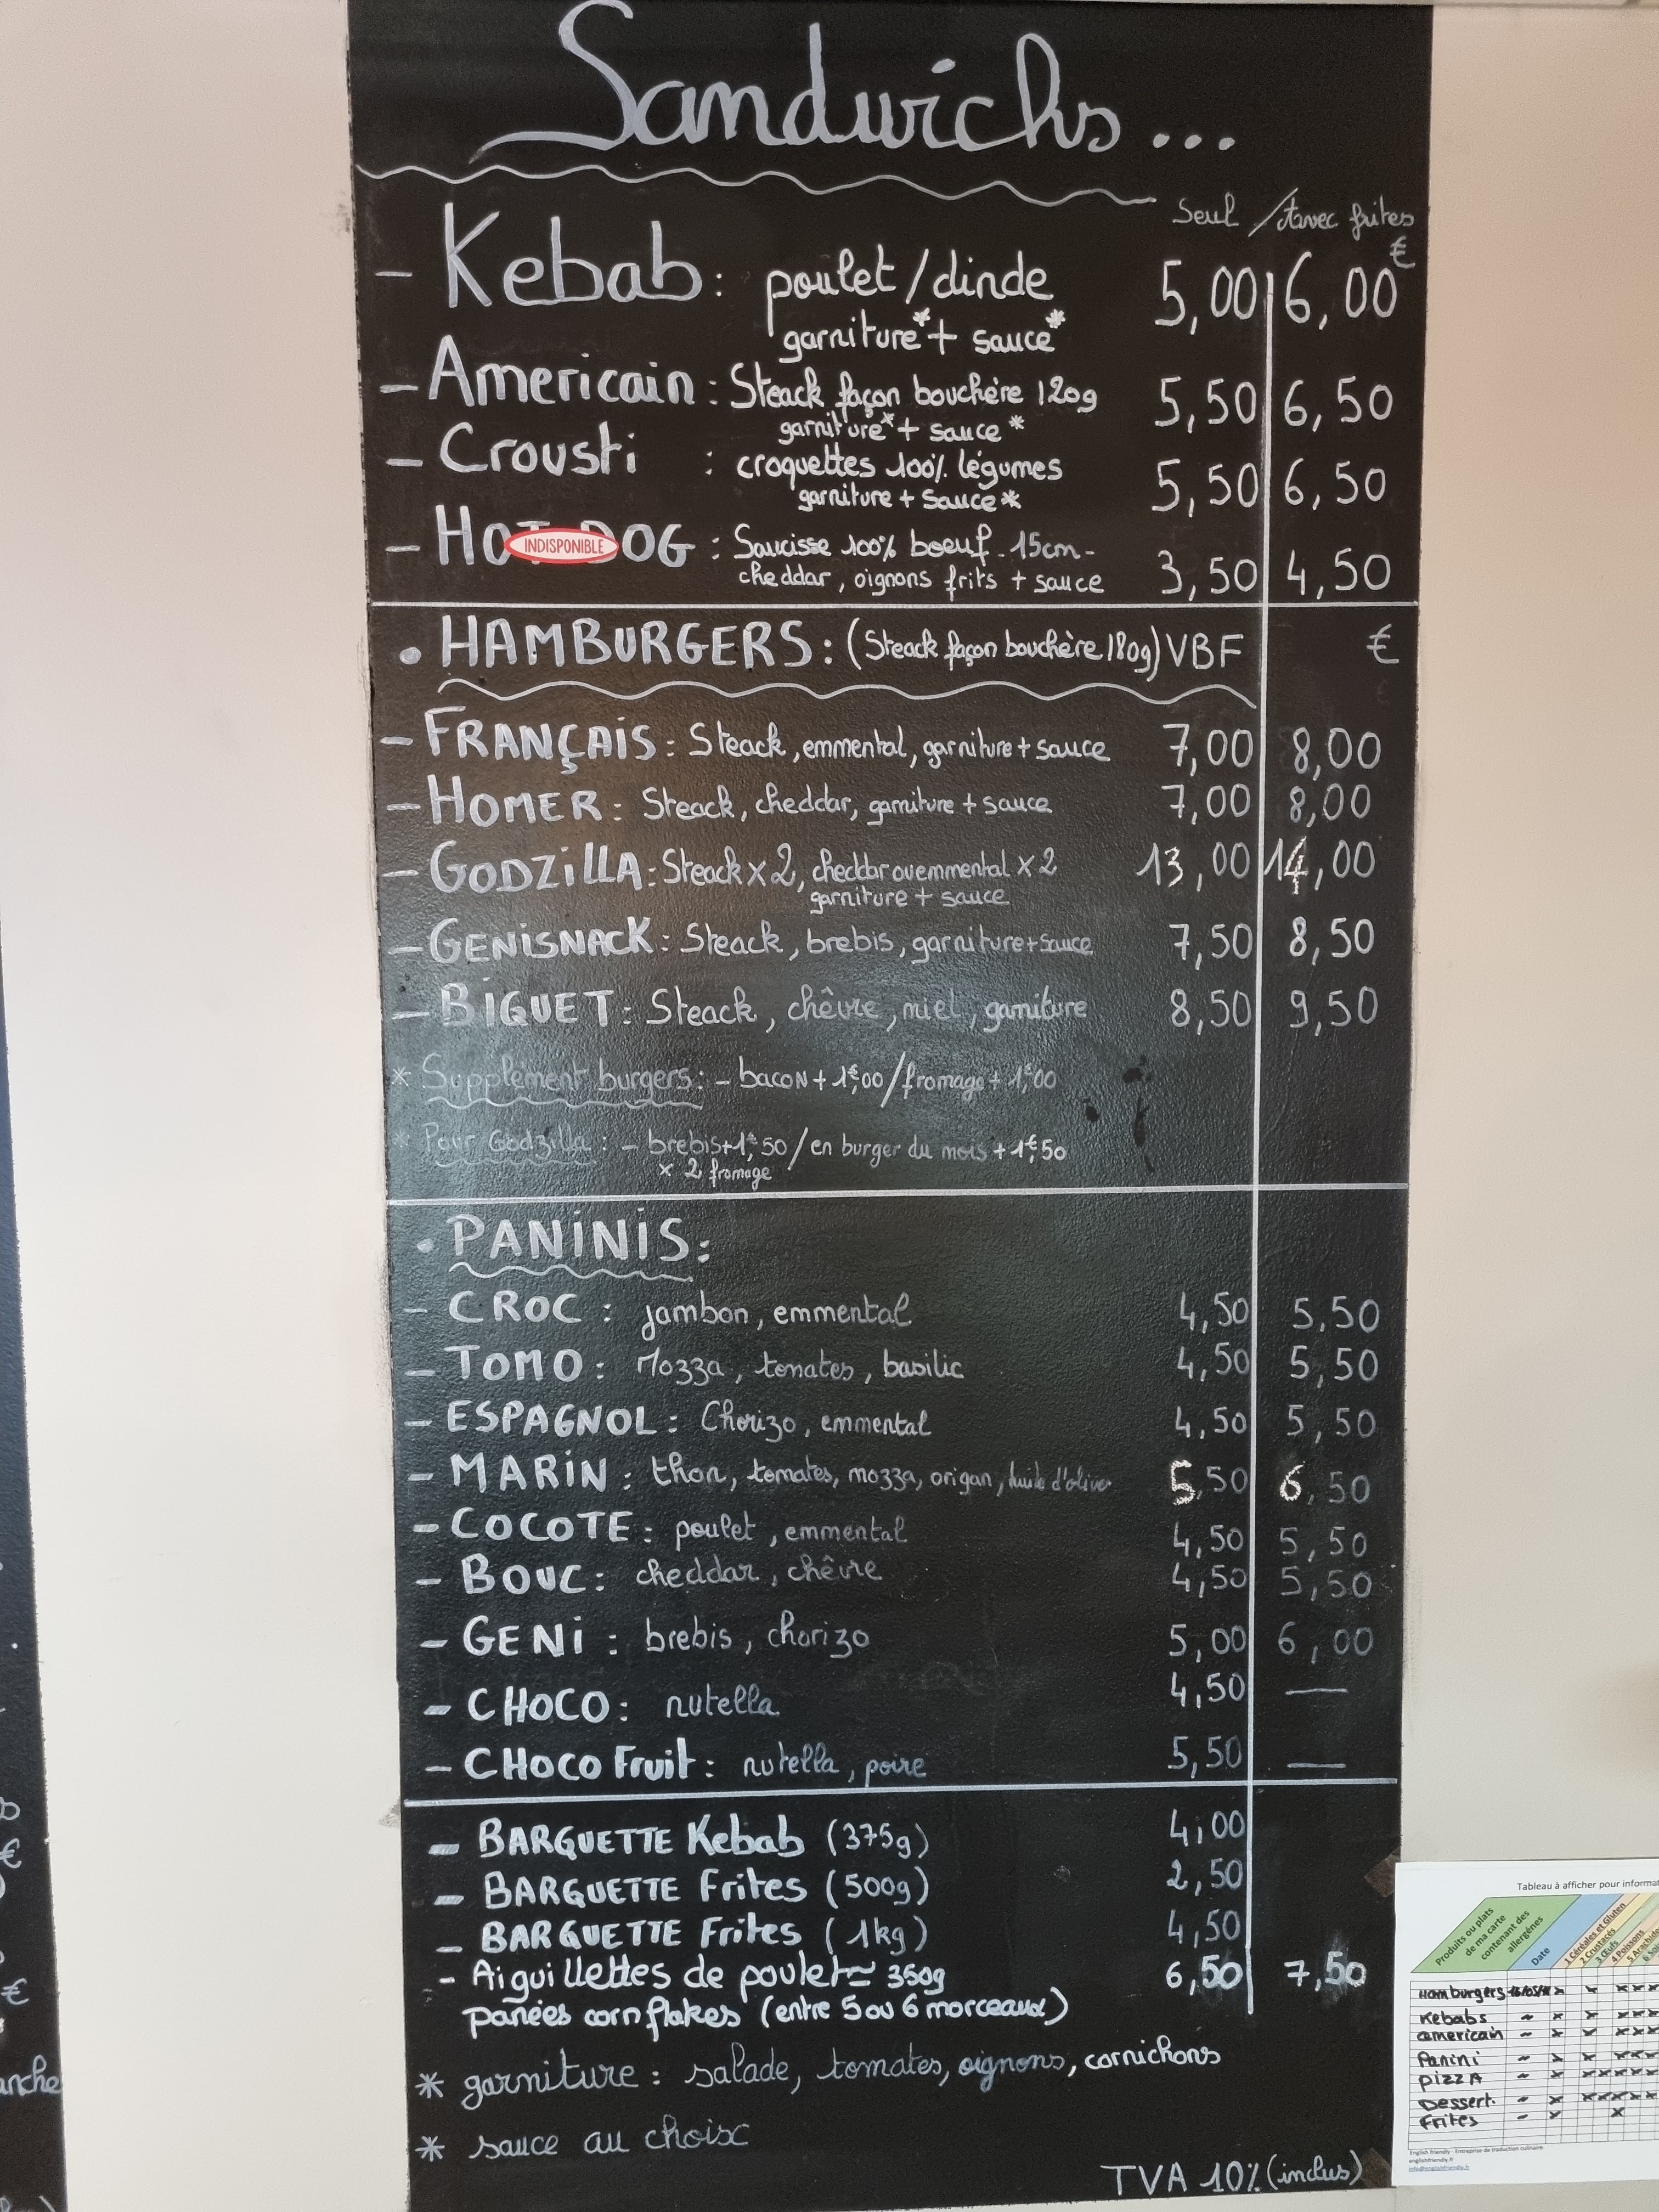 Sandwichs...
Seul / Avec frites
€
- Kebab : poulet/dinde 5,00 6,00
garniture* + sauce*
- Americain : Steack façon bouchère 120g 5,50 6,50
garniture* + sauce*
- Crousti : croquettes 100% légumes 5,50 6,50
garniture + sauce*
- HOT DOG : Saucisse 100% boeuf - 15cm -
INDISPONIBLE
cheddar, oignons frits + sauce 3,50 4,50
• HAMBURGERS : (Steack façon bouchère 180g) VBF €
- FRANÇAIS : Steack, emmental, garniture + sauce 7,00 8,00
- HOMER : Steack, cheddar, garniture + sauce 7,00 8,00
- GODZILLA : Steack x 2, cheddar ou emmental x 2 13,00 14,00
garniture + sauce
- GENISNACK : Steack, brebis, garniture + sauce 7,50 8,50
- BIQUET : Steack, chêvre, miel, garniture 8,50 9,50
* Supplément burgers : - bacon + 1€,00 / fromage + 1€,00
* Pour Godzilla : - brebis + 1€,50 / en burger du mois + 1€,50
x 2 fromage
• PANINIS :
- CROC : jambon, emmental 4,50 5,50
- TOMO : Mozza, tomates, basilic 4,50 5,50
- ESPAGNOL : Chorizo, emmental 4,50 5,50
- MARIN : thon, tomates, mozza, origan, huile d'olive 5,50 6,50
- COCOTE : poulet, emmental 4,50 5,50
- BOUC : cheddar, chêvre 4,50 5,50
- GENI : brebis, chorizo 5,00 6,00
- CHOCO : nutella 4,50 —
- CHOCO Fruit : nutella, poire 5,50 —
- BARQUETTE Kebab (375g) 4,00
- BARQUETTE Frites (500g) 2,50
- BARQUETTE Frites (1kg) 4,50
- Aiguillettes de poulet ≃ 350g 6,50 7,50
panées cornflakes (entre 5 ou 6 morceaux)
* garniture : salade, tomates, oignons, cornichons
* sauce au choix
TVA 10% (inclus)
€
€
anche
Tableau à afficher pour informat
Produits ou plats
de ma carte
contenant des
allergènes
Date
1 Céréales et Gluten
2 Crustacés
3 Œufs
4 Poissons
5 Arachide
Hamburgers
Kebabs
americain
Panini
pizza
Dessert.
frites
English friendly : Entreprise de traduction culinaire
englishfriendly.fr
info@englishfriendly.fr